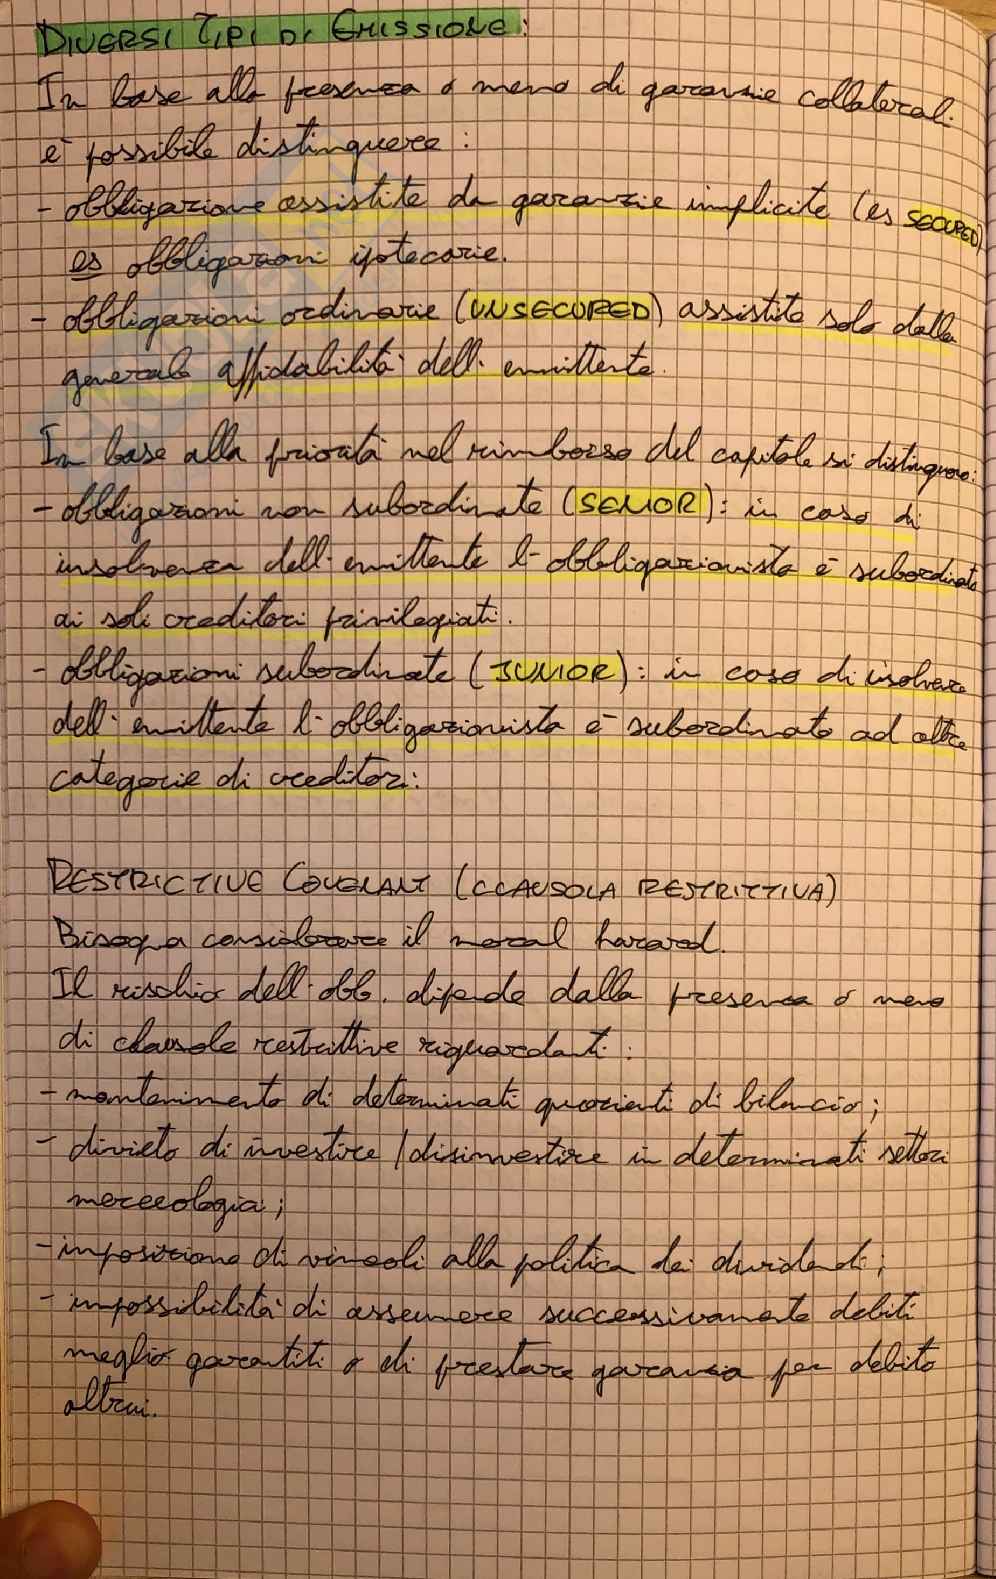 DIVERSI TIPI DI EMISSIONE:
In base alla presenza o meno di garanzie collaterali
è possibile distinguere:
- obbligazione assistite da garanzie implicite (es SECURED)
es obbligazioni ipotecarie.
- obbligazioni ordinarie (UNSECURED) assistite solo dalla
generale affidabilità dell'emittente.
In base alla priorità nel rimborso del capitale si distinguono:
- obbligazioni non subordinate (SENIOR): in caso di
insolvenza dell'emittente l'obbligazionista è subordinato
ai soli creditori privilegiati.
- obbligazioni subordinate (JUNIOR): in caso di insolvenza
dell'emittente l'obbligazionista è subordinato ad altre
categorie di creditori:
RESTRICTIVE COVENANT (CLAUSOLA RESTRITTIVA)
Bisogna considerare il moral hazard.
Il rischio dell'obb. dipende dalla presenza o meno
di clausole restrittive riguardanti:
- mantenimento di determinati quozienti di bilancio;
- divieto di investire/disinvestire in determinati settori
merceologici;
- imposizione di vincoli alla politica dei dividendi;
- impossibilità di assumere successivamente debiti
meglio garantiti o di prestare garanzia per debito
altrui.